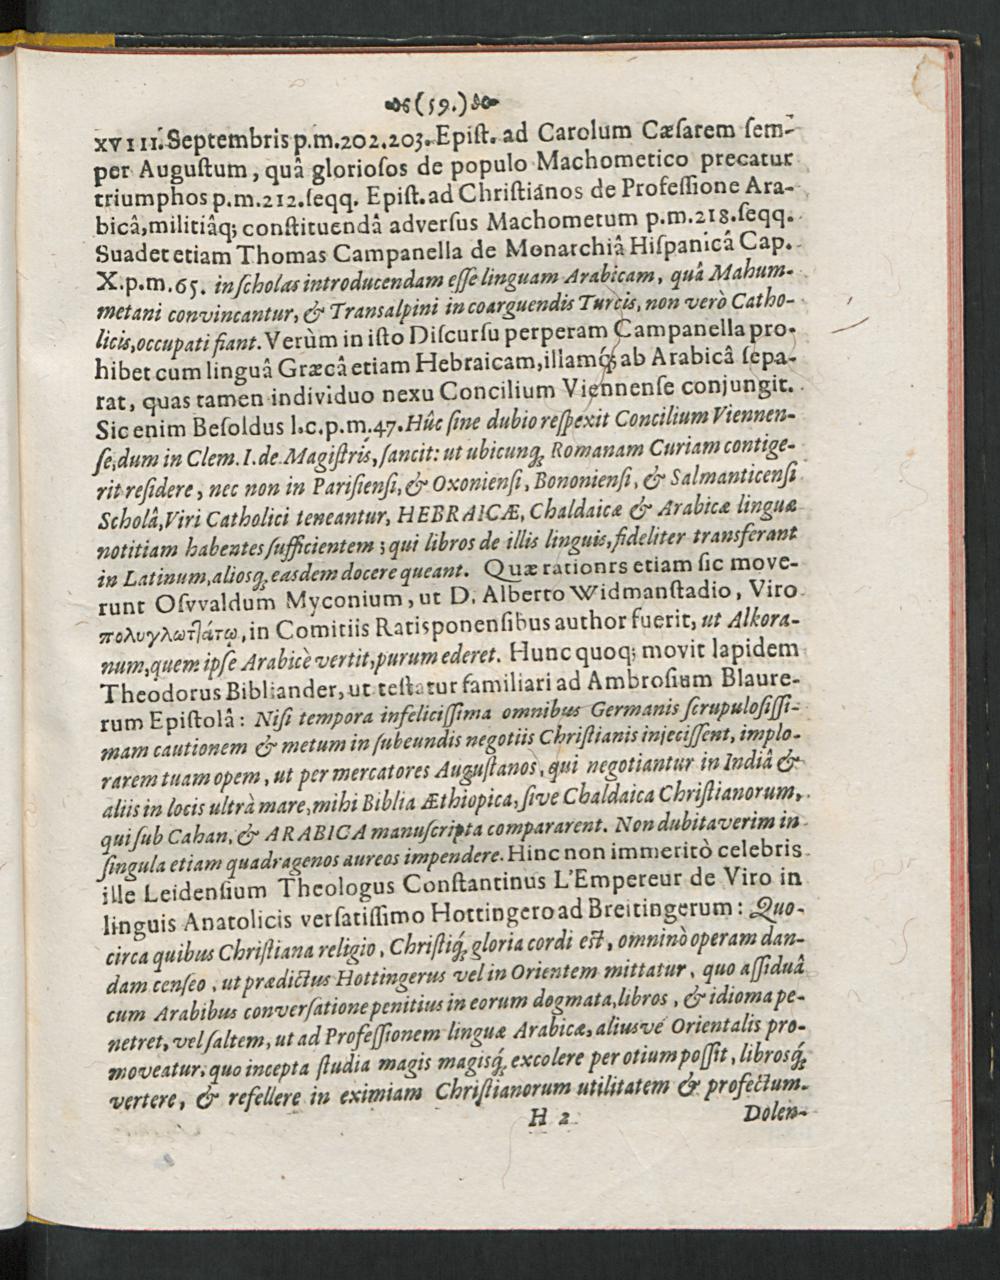 (59.)
XVIII. Septembris p.m.202.203. Epiſt. ad Carolum Cæſarem ſem-
per Auguſtum, quâ glorioſos de populo Machometico precatur
triumphos p.m.212.ſeqq. Epiſt. ad Chriſtiános de Profeſſione Ara-
bicâ, militiâq; conſtituendâ adverſus Machometum p.m.218.ſeqq.
Suadet etiam Thomas Campanella de Monarchiâ Hiſpanicâ Cap.
X.p.m.65. in ſcholas introducendam eſſe linguam Arabicam, quâ Mahum-
metani convincantur, & Transalpini in coarguendis Turcis, non verò Catho-
licis, occupati fiant. Verùm in iſto Diſcurſu perperam Campanella pro-
hibet cum linguâ Græcâ etiam Hebraicam, illamq́; ab Arabicâ ſepa-
rat, quas tamen individuo nexu Concilium Viennenſe conjungit.
Sic enim Beſoldus l.c.p.m.47. Hûc ſine dubio reſpexit Concilium Viennen-
ſe, dum in Clem. I. de Magiſtris, ſancit: ut ubicunq; Romanam Curiam contige-
rit reſidere, nec non in Pariſienſi, & Oxonienſi, Bononienſi, & Salmanticenſi
Scholâ, Viri Catholici teneantur, HEBRAICÆ, Chaldaicæ & Arabicæ linguæ
notitiam habentes ſufficientem; qui libros de illis linguis, fideliter transferant
in Latinum, aliosq; easdem docere queant. Quæ rationrs etiam ſic move-
runt Oſvvaldum Myconium, ut D. Alberto Widmanſtadio, Viro
πολυγλωτ]άτῳ, in Comitiis Ratisponenſibus author fuerit, ut Alkora-
num, quem ipſe Arabicè vertit, purum ederet. Hunc quoq; movit lapidem
Theodorus Bibliander, ut teſtatur familiari ad Ambroſium Blaure-
rum Epiſtolâ: Niſi tempora infeliciſſima omnibus Germanis ſcrupuloſiſſi-
mam cautionem & metum in ſubeundis negotiis Chriſtianis injeciſſent, implo-
rarem tuam opem, ut per mercatores Auguſtanos, qui negotiantur in Indiâ &
aliis in locis ultrà mare, mihi Biblia Æthiopica, ſive Chaldaica Chriſtianorum,
qui ſub Cahan, & ARABICA manuſcripta compararent. Non dubitaverim in
ſingula etiam quadragenos aureos impendere. Hinc non immeritò celebris
ille Leidenſium Theologus Conſtantinus L'Empereur de Viro in
linguis Anatolicis verſatiſſimo Hottingero ad Breitingerum: Quo-
circa quibus Chriſtiana religio, Chriſtiq́; gloria cordi eſt, omninò operam dan-
dam cenſeo, ut prædictus Hottingerus vel in Orientem mittatur, quo aſſiduâ
cum Arabibus converſatione penitius in eorum dogmata, libros, & idioma pe-
netret, vel ſaltem, ut ad Profeſſionem linguæ Arabicæ, aliusve Orientalis pro-
moveatur, quo incepta ſtudia magis magisq́; excolere per otium poſſit, librosq́;
vertere, & refellere in eximiam Chriſtianorum utilitatem & profectum.
H 2
Dolen-